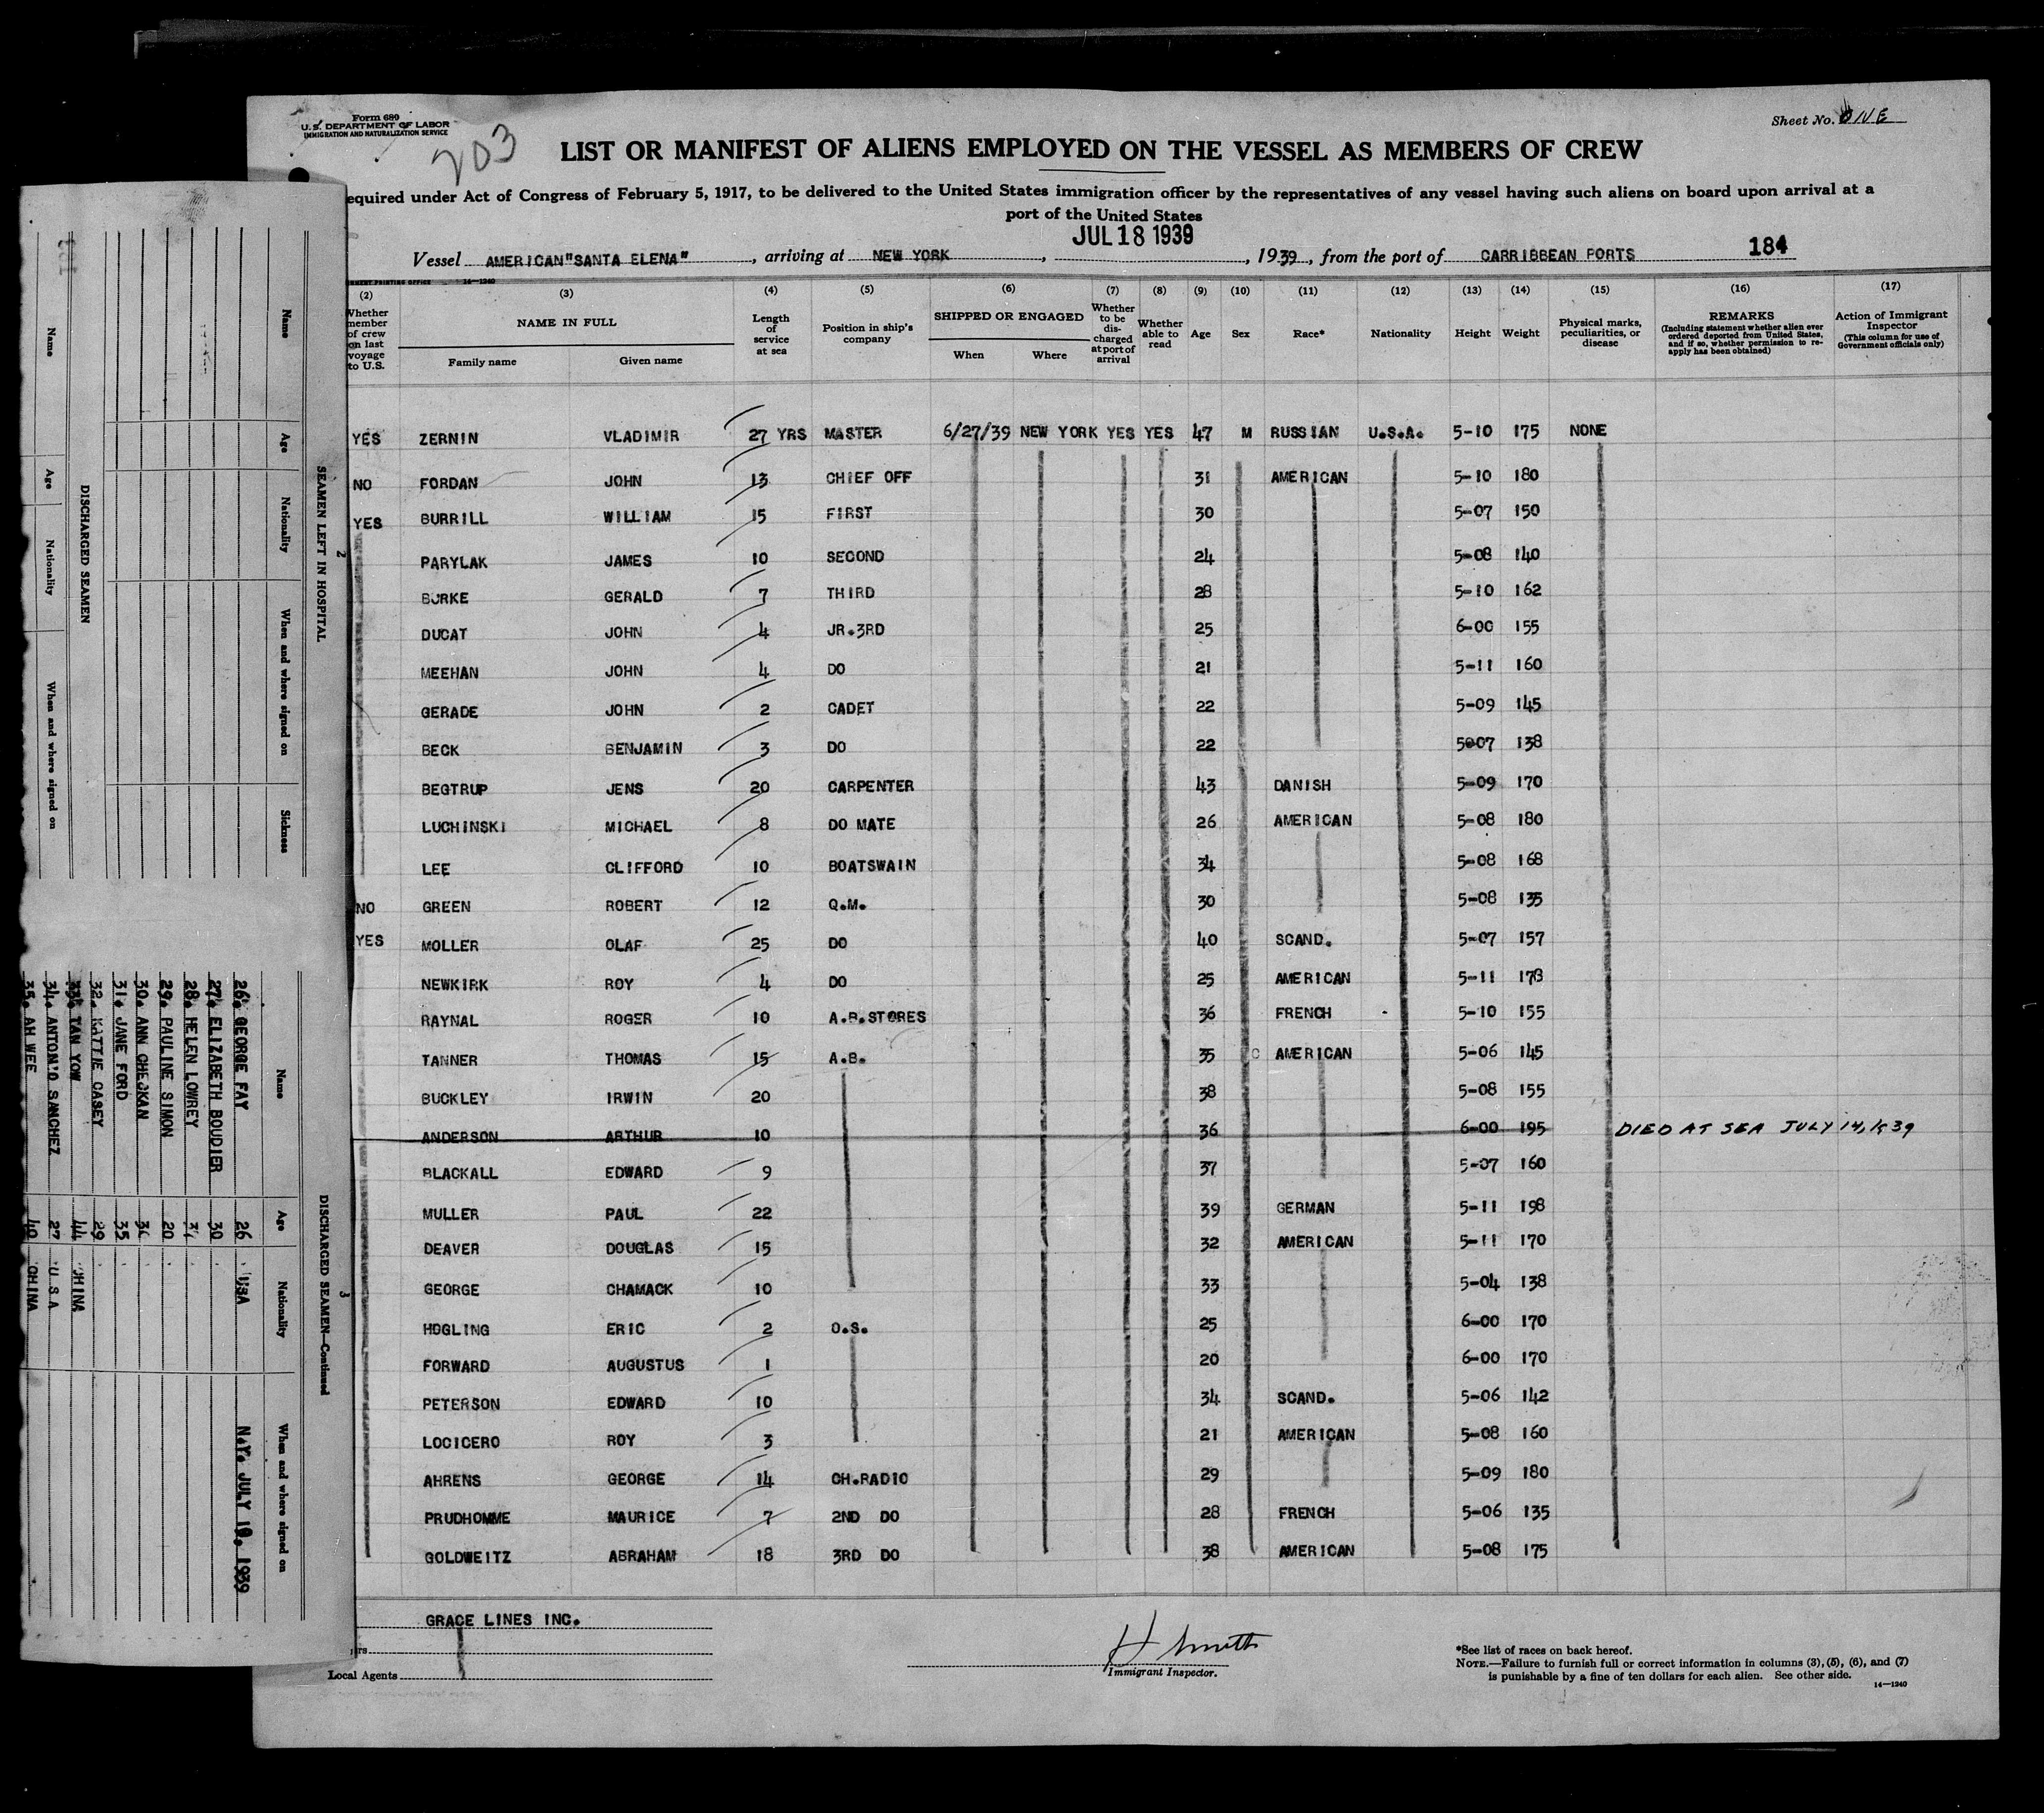 Form 689
U. S. DEPARTMENT OF LABOR
IMMIGRATION AND NATURALIZATION SERVICE
203
Sheet No. ONE
LIST OR MANIFEST OF ALIENS EMPLOYED ON THE VESSEL AS MEMBERS OF CREW
equired under Act of Congress of February 5, 1917, to be delivered to the United States immigration officer by the representatives of any vessel having such aliens on board upon arrival at a
port of the United States
JUL 18 1939
Vessel AMERICAN "SANTA ELENA", arriving at NEW YORK, , 1939, from the port of CARRIBBEAN PORTS 184
14—1240
(2) (3) (4) (5) (6) (7) (8) (9) (10) (11) (12) (13) (14) (15) (16) (17)
Whether member of crew on last voyage to U.S.
NAME IN FULL
Family name Given name
Length of service at sea
Position in ship's company
SHIPPED OR ENGAGED
When Where
Whether to be discharged at port of arrival
Whether able to read
Age Sex Race* Nationality Height Weight
Physical marks, peculiarities, or disease
REMARKS
(Including statement whether alien ever ordered deported from United States, and if so, whether permission to reapply has been obtained)
Action of Immigrant Inspector
(This column for use of Government officials only)
YES ZERNIN VLADIMIR 27 YRS MASTER 6/27/39 NEW YORK YES YES 47 M RUSSIAN U.S.A. 5-10 175 NONE
NO FORDAN JOHN 13 CHIEF OFF 31 AMERICAN 5-10 180
YES BURRILL WILLIAM 15 FIRST 30 5-07 150
PARYLAK JAMES 10 SECOND 24 5-08 140
BURKE GERALD 7 THIRD 28 5-10 162
DUCAT JOHN 4 JR.3RD 25 6-00 155
MEEHAN JOHN 4 DO 21 5-11 160
GERADE JOHN 2 CADET 22 5-09 145
BECK BENJAMIN 3 DO 22 5007 138
BEGTRUP JENS 20 CARPENTER 43 DANISH 5-09 170
LUCHINSKI MICHAEL 8 DO MATE 26 AMERICAN 5-08 180
LEE CLIFFORD 10 BOATSWAIN 34 5-08 168
NO GREEN ROBERT 12 Q.M. 30 5-08 135
YES MOLLER OLAF 25 DO 40 SCAND. 5-07 157
NEWKIRK ROY 4 DO 25 AMERICAN 5-11 173
RAYNAL ROGER 10 A.B.STORES 36 FRENCH 5-10 155
TANNER THOMAS 15 A.B. 35 AMERICAN 5-06 145
BUCKLEY IRWIN 20 38 5-08 155
ANDERSON ARTHUR 10 36 6-00 195 DIED AT SEA JULY 14, 1939
BLACKALL EDWARD 9 37 5-07 160
MULLER PAUL 22 39 GERMAN 5-11 198
DEAVER DOUGLAS 15 32 AMERICAN 5-11 170
GEORGE CHAMACK 10 33 5-04 138
HOGLING ERIC 2 O.S. 25 6-00 170
FORWARD AUGUSTUS 1 20 6-00 170
PETERSON EDWARD 10 34 SCAND. 5-06 142
LOCICERO ROY 3 21 AMERICAN 5-08 160
AHRENS GEORGE 14 CH.RADIO 29 5-09 180
PRUDHOMME MAURICE 7 2ND DO 28 FRENCH 5-06 135
GOLDWEITZ ABRAHAM 18 3RD DO 38 AMERICAN 5-08 175
GRACE LINES INC.
Local Agents
H Smith
Immigrant Inspector.
*See list of races on back hereof.
NOTE.—Failure to furnish full or correct information in columns (3), (5), (6), and (7)
is punishable by a fine of ten dollars for each alien. See other side.
14—1240
2
SEAMEN LEFT IN HOSPITAL
Name Age Nationality When and where signed on Sickness
DISCHARGED SEAMEN
Name Age Nationality When and where signed on
3
DISCHARGED SEAMEN—Continued
Name Age Nationality When and where signed on
26. GEORGE FAY 26 USA N.Y. JULY 1939
27. ELIZABETH BOUDIER 30
28. HELEN LOWREY
29. PAULINE SIMON 20
30. ANN
31. JANE FORD 35
32. KATTIE CASEY 29
33. TAN YOW 44 CHINA
34. ANTON'O SANCHEZ 27 U S A
35. AH WEE 40 CHINA